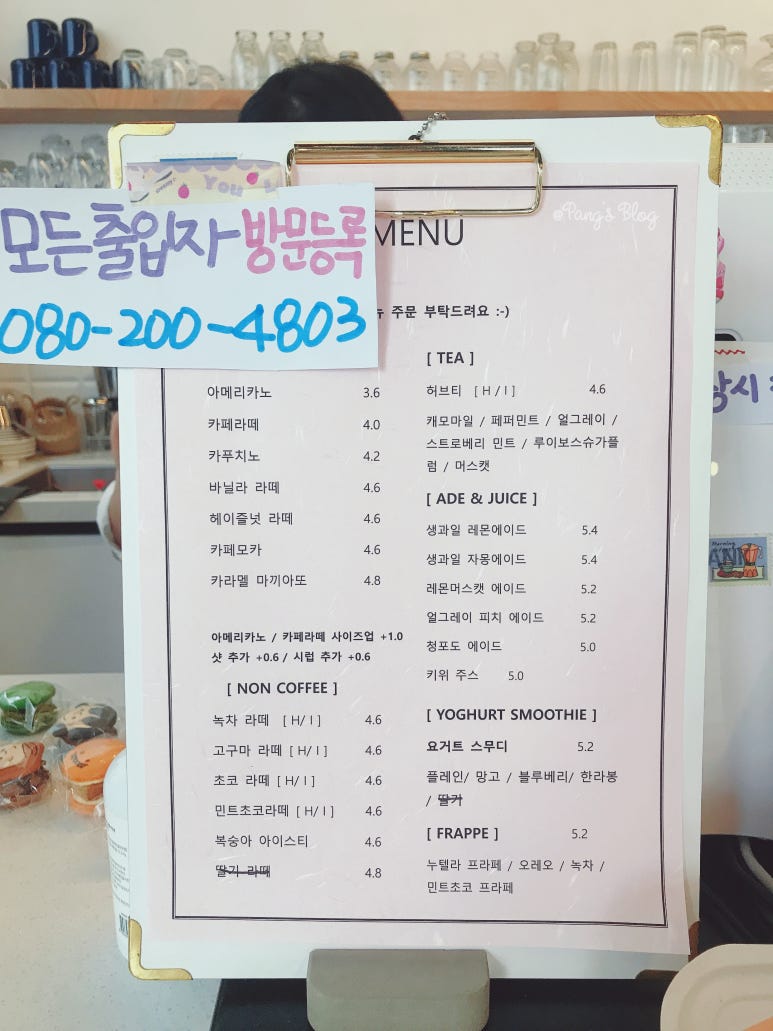 You
@Pang's Blog
모든출입자 방문등록
080-200-4803
MENU
뉴 주문 부탁드려요 :-)
아메리카노 3.6
카페라떼 4.0
카푸치노 4.2
바닐라 라떼 4.6
헤이즐넛 라떼 4.6
카페모카 4.6
카라멜 마끼아또 4.8
아메리카노 / 카페라떼 사이즈업 +1.0
샷 추가 +0.6 / 시럽 추가 +0.6
[ NON COFFEE ]
녹차 라떼 [ H/ I ] 4.6
고구마 라떼 [ H/ I ] 4.6
초코 라떼 [ H/ I ] 4.6
민트초코라떼 [ H/ I ] 4.6
복숭아 아이스티 4.6
딸기 라떼 4.8
[ TEA ]
허브티 [ H / I ] 4.6
캐모마일 / 페퍼민트 / 얼그레이 /
스트로베리 민트 / 루이보스슈가플
럼 / 머스캣
[ ADE & JUICE ]
생과일 레몬에이드 5.4
생과일 자몽에이드 5.4
레몬머스캣 에이드 5.2
얼그레이 피치 에이드 5.2
청포도 에이드 5.0
키위 주스 5.0
[ YOGHURT SMOOTHIE ]
요거트 스무디 5.2
플레인/ 망고 / 블루베리/ 한라봉
/ 딸기
[ FRAPPE ] 5.2
누텔라 프라페 / 오레오 / 녹차 /
민트초코 프라페
상시
Morning